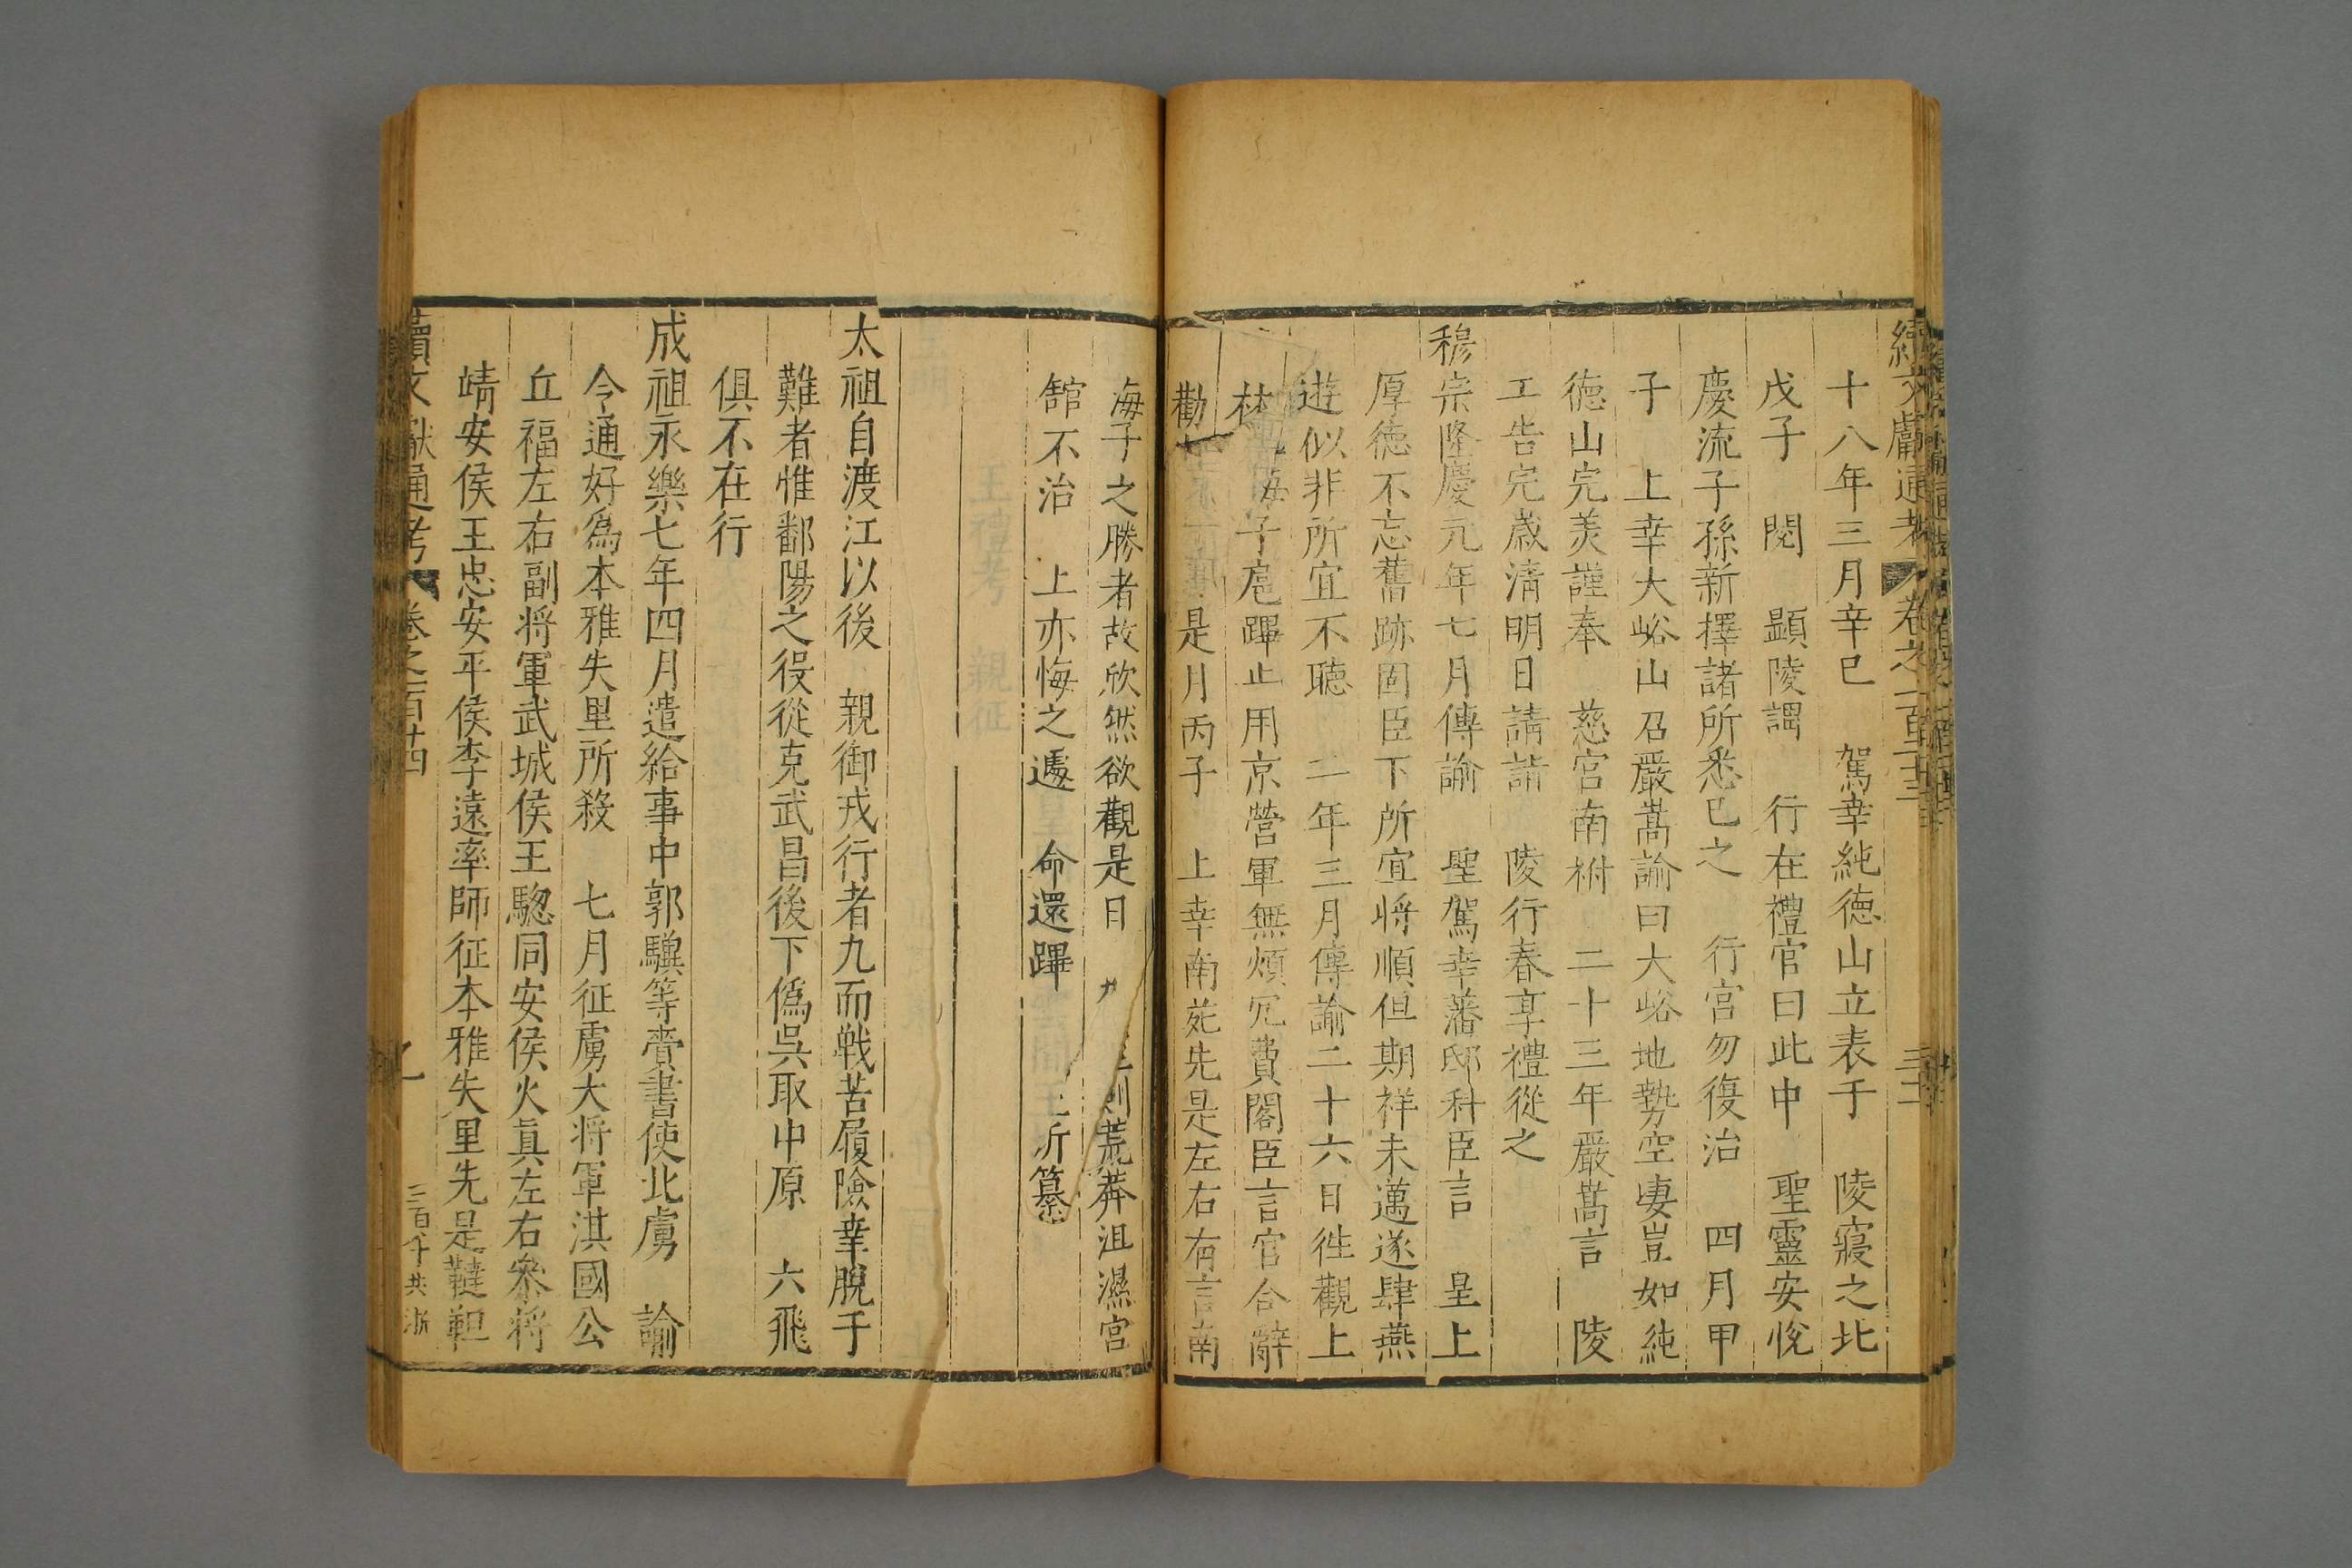 續文獻通考 卷之一百十三
十八年三月辛巳 駕幸純德山立表于 陵寢之北
戊子 閱 顯陵謂 行在禮官曰此中 聖靈安悅
慶流子孫新擇諸所悉已之 行宮勿復治 四月甲
子 上幸大峪山召嚴嵩諭曰大峪地勢空凄豈如純
德山完美謹奉 慈宮南祔 二十三年嚴嵩言 陵
工告完歲清明日請 陵行春享禮從之
穆宗隆慶元年七月傳諭 聖駕幸藩邸科臣言 皇上
厚德不忘舊跡固臣下所宜將順但期祥未邁遂肆燕
遊似非所宜不聽 二年三月傳諭二十六日徃觀上
林 海子扈蹕止用京營軍無煩冗費閣臣言官合辭
勸 是月丙子 上幸南苑先是左右有言南
海子之勝者故欣然欲觀是日 則荒莽沮濕宮
舘不治 上亦悔之遽 命還蹕
太祖自渡江以後 親御戎行者九而戰苦履險幸脫于
難者惟鄱陽之役從克武昌後下僞吳取中原 六飛
俱不在行
成祖永樂七年四月遣給事中郭驥等賫書使北虜 諭
令通好爲本雅失里所殺 七月征虜大將軍淇國公
丘福左右副將軍武城侯王驄同安侯火眞左右叅將
靖安侯王忠安平侯李遠率師征本雅失里先是韃靼
續文獻通考 卷之百十四